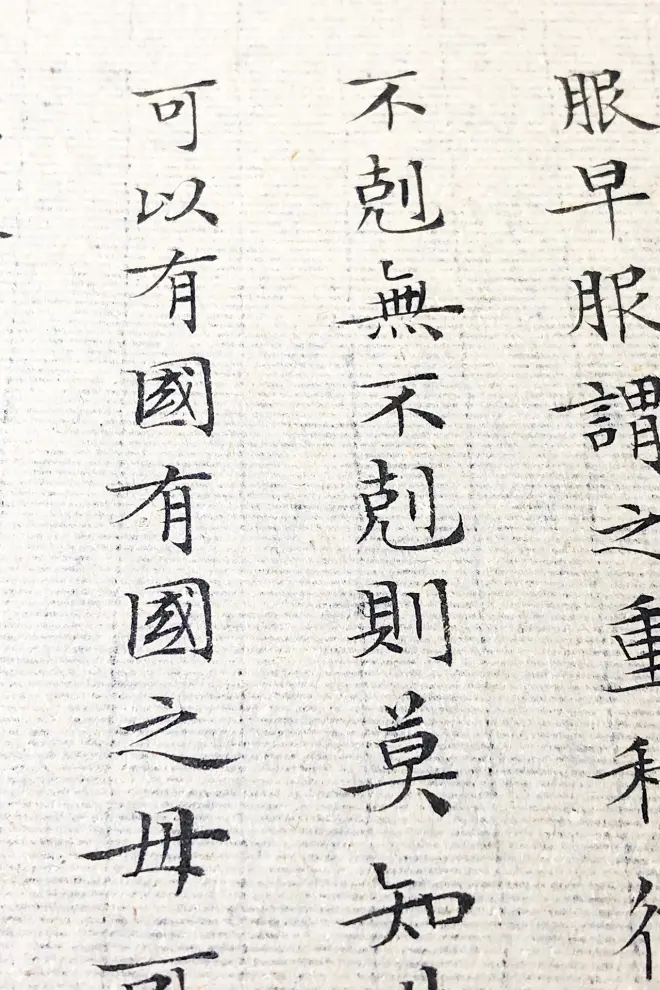 服早服謂之重
不剋無不剋則莫知
可以有國有國之母